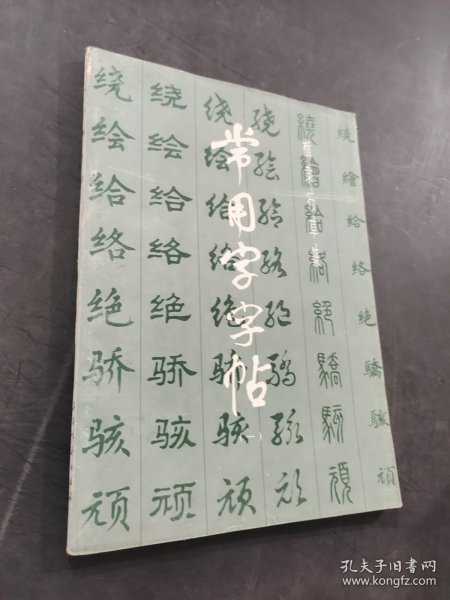 绕绘给络绝骄骇顽
绕绘给络绝骄骇顽
绕绘给络绝骄骇顽
绕绘给络绝骄骇顽
繞繪給絡絕驕駭頑
繞繪給絡絶驕駭頑
常用字字帖
(一)
楷隶行草篆
孔夫子旧书网
www.kongfz.com